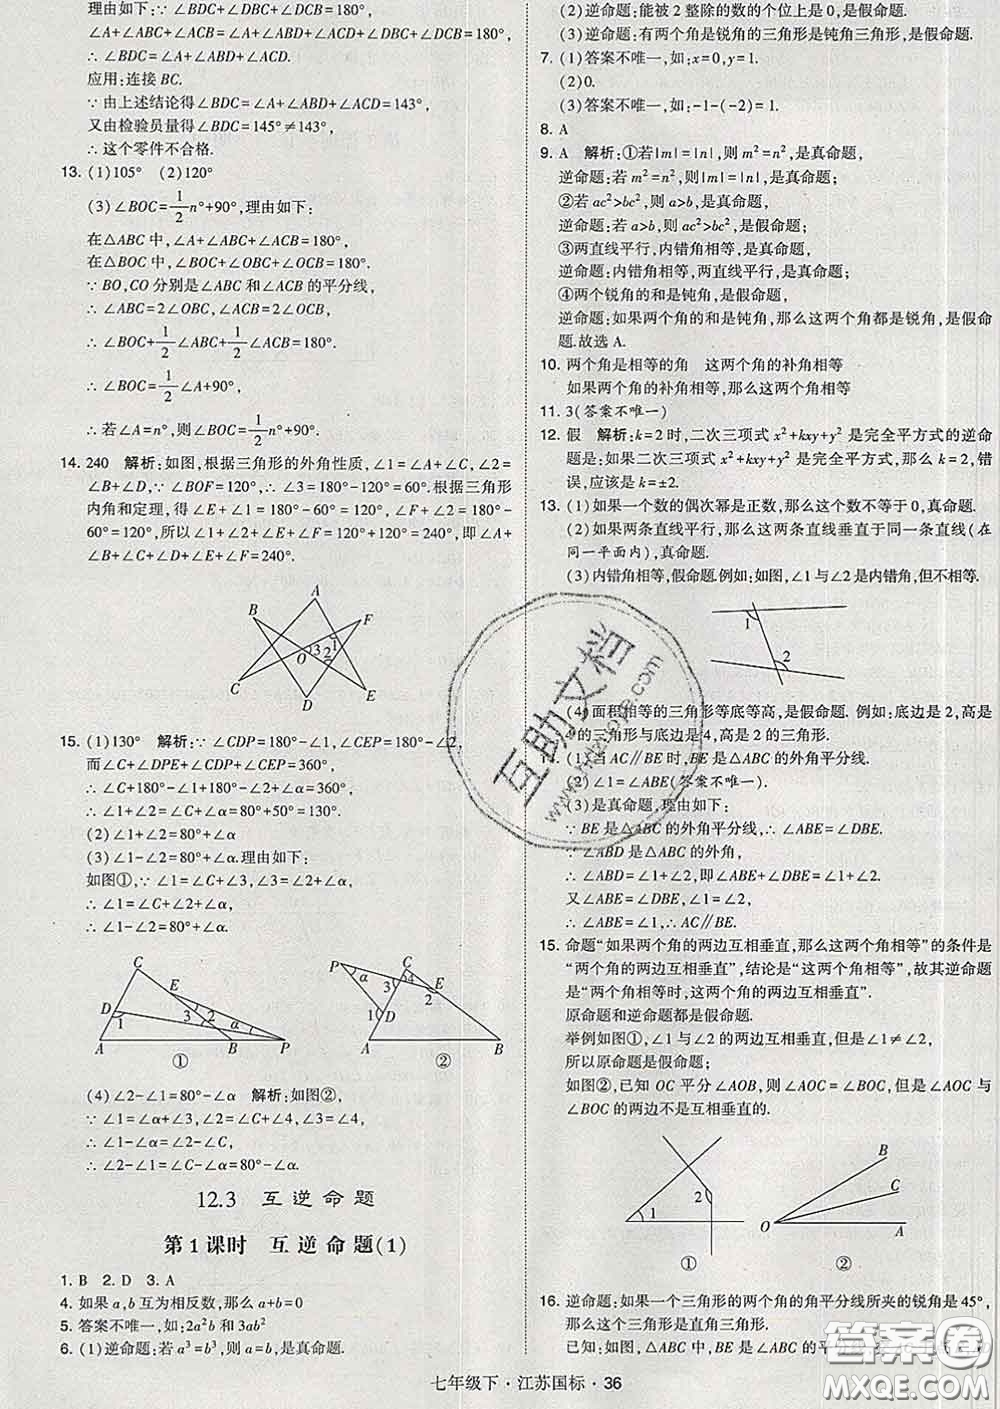 理由如下:∵∠BDC+∠DBC+∠DCB=180°,
∠A+∠ABC+∠ACB=180°,
∠A+∠ABD+∠ACD+∠DBC+∠DCB=180°,
∴∠BDC=∠A+∠ABD+∠ACD.
应用:连接 BC.
∵由上述结论得∠BDC=∠A+∠ABD+∠ACD=143°,
又由检验员量得∠BDC=145°≠143°,
∴这个零件不合格.
13. (1)105° (2)120°
(3)∠BOC=1/2n°+90°,理由如下:
在△ABC 中,∠ABC+∠A+∠ACB=180°,
在△BOC 中,∠BOC+∠OBC+∠OCB=180°,
∵BO,CO 分别是∠ABC 和∠ACB 的平分线,
∴∠ABC=2∠OBC,∠ACB=2∠OCB,
∴∠BOC+1/2∠ABC+1/2∠ACB=180°.
∴∠BOC=1/2∠A+90°,
∴若∠A=n°,则∠BOC=1/2n°+90°.
14. 240 解析:如图,根据三角形的外角性质,∠1=∠A+∠C,∠2=
∠B+∠D,∵∠BOF=120°,∴∠3=180°-120°=60°.根据三角形
内角和定理,得∠E+∠1=180°-60°=120°,∠F+∠2=180°-
60°=120°,所以∠1+∠2+∠E+∠F=120°+120°=240°,即∠A+
∠B+∠C+∠D+∠E+∠F=240°.
A
B
F
O
3
1
2
C
D
E
15. (1)130° 解析:∵∠CDP=180°-∠1,∠CEP=180°-∠2,
而∠C+∠DPE+∠CDP+∠CEP=360°,
∴∠C+180°-∠1+180°-∠2+∠α=360°,
∴∠1+∠2=∠C+∠α=80°+50°=130°.
(2)∠1+∠2=80°+∠α
(3)∠1-∠2=80°+∠α.理由如下:
如图①,∵∠1=∠C+∠3,∠3=∠2+∠α,
∴∠1=∠C+∠2+∠α,
∴∠1-∠2=80°+∠α.
C
D
E
1
3
2
α
A
B
P
①
P
C
α
3
4
E
2
D
1
A
B
②
(4)∠2-∠1=80°-∠α 解析:如图②,
∵∠1=∠α+∠3,∠2=∠C+∠4,∠3=∠4,
∴∠1-∠α=∠2-∠C,
∴∠2-∠1=∠C-∠α=80°-∠α.
12.3 互逆命题
第1课时 互逆命题(1)
1. B 2. D 3. A
4. 如果 a,b 互为相反数,那么 a+b=0
5. 答案不唯一,如:2a²b 和 3ab²
6. (1)逆命题:若 a³=b³,则 a=b,是真命题.
(2)逆命题:能被 2 整除的数的个位上是 0,是假命题.
(3)逆命题:有两个角是锐角的三角形是钝角三角形,是假命题.
7. (1)答案不唯一,如:x=0,y=1.
(2)0.
(3)答案不唯一,如:-1-(-2)=1.
8. A
9. A 解析:①若|m|=|n|,则 m²=n²,是真命题,
逆命题:若 m²=n²,则|m|=|n|,是真命题;
②若 ac²>bc²,则 a>b,是真命题,
逆命题:若 a>b,则 ac²>bc²,是假命题;
③两直线平行,内错角相等,是真命题,
逆命题:内错角相等,两直线平行,是真命题;
④两个锐角的和是钝角,是假命题,
逆命题:如果两个角的和是钝角,那么这两个角都是锐角,是假命
题.故选 A.
10. 两个角是相等的角 这两个角的补角相等
如果两个角的补角相等,那么这两个角相等
11. 3(答案不唯一)
12. 假 解析:k=2 时,二次三项式 x²+kxy+y² 是完全平方式的逆命
题是:如果二次三项式 x²+kxy+y² 是完全平方式,那么 k=2,错
误,应该是 k=±2.
13. (1)如果一个数的偶次幂是正数,那么这个数不等于 0,真命题.
(2)如果两条直线平行,那么这两条直线垂直于同一条直线(在
同一平面内),真命题.
(3)内错角相等,假命题.例如:如图,∠1 与∠2 是内错角,但不相等.
1
2
(4)面积相等的三角形等底等高,是假命题. 例如:底边是 2,高是
的三角形与底边是 4,高是 2 的三角形.
(1)当 AC∥BE 时,BE 是△ABC 的外角平分线.
(2)∠1=∠ABE(答案不唯一).
(3)是真命题,理由如下:
∵BE 是△ABC 的外角平分线,∴∠ABE=∠DBE.
∵∠ABD 是△ABC 的外角,
∴∠ABD=∠1+∠2,即∠ABE+∠DBE=∠1+∠2.
又∵∠ABE=∠DBE,∠1=∠2,
∴∠ABE=∠1,∴AC∥BE.
15. 命题“如果两个角的两边互相垂直,那么这两个角相等”的条件是
“两个角的两边互相垂直”,结论是“这两个角相等”,故其逆命题
是“两个角相等,这两个角的两边互相垂直”.
原命题和逆命题都是假命题.
举例如图①,∠1 与∠2 的两边互相垂直,但∠1≠∠2,
所以原命题是假命题;
如图②,已知 OC 平分∠AOB,则∠AOC=∠BOC,但∠AOC 与
∠BOC 的两边不是互相垂直的.
1
2
①
B
C
O
A
②
16. 逆命题:如果一个三角形的两个角的角平分线所夹的锐角是 45°,
那么这个三角形是直角三角形.
已知:如图,△ABC 中,BE 是∠ABC
七年级下·江苏国标·36
互助文档
答案圈